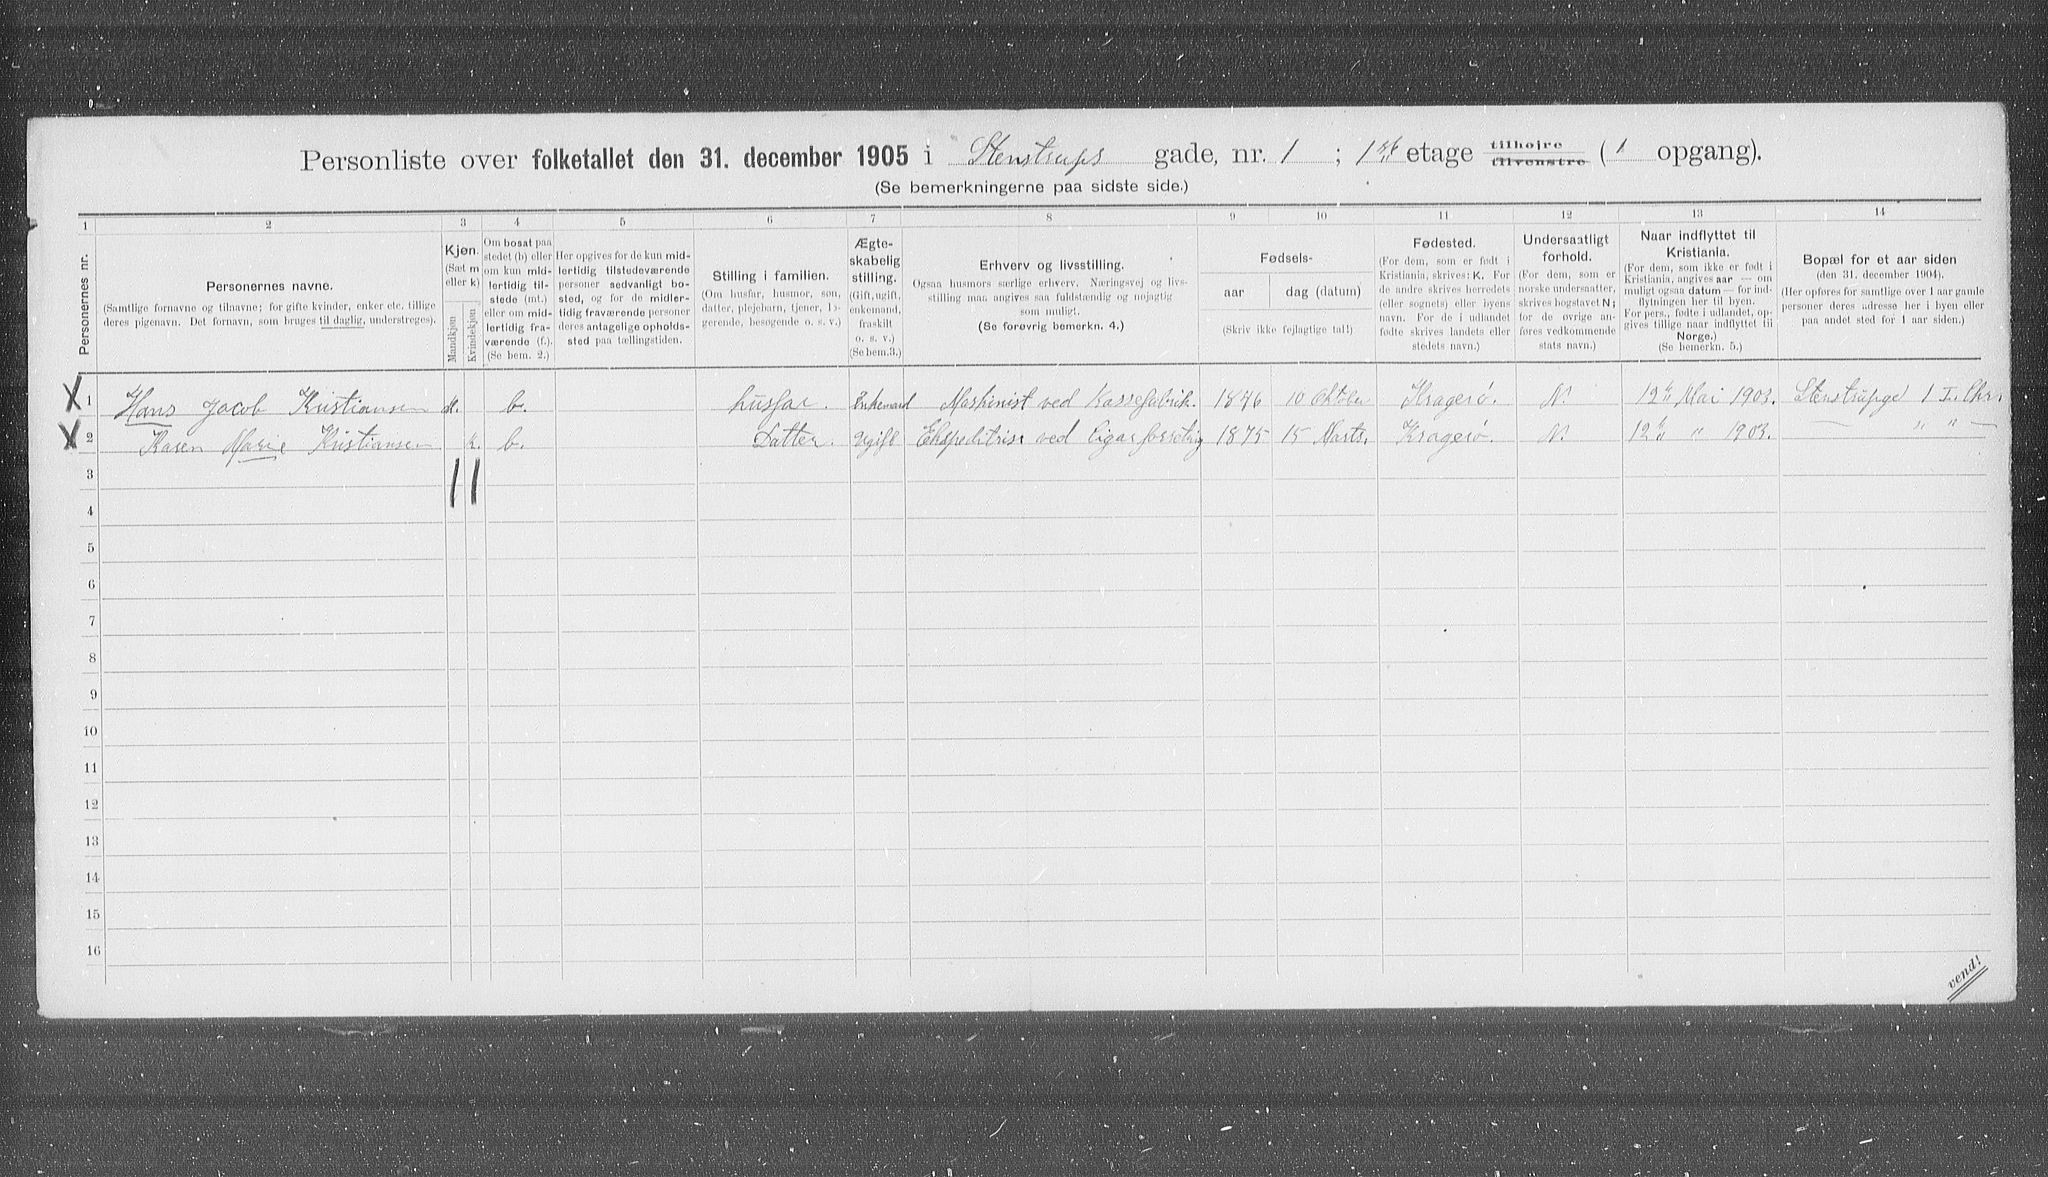 Personliste over folketallet den 31. december 1905 i Stenstrups gade, nr. 1 ; 1ste etage tilhøjre tilvenstre (1 opgang).
(Se bemerkningerne paa sidste side.)
1 2 3 4 5 6 7 8 9 10 11 12 13 14
Personernes nr.
Personernes navne.
(Samtlige fornavne og tilnavne; for gifte kvinder, enker etc. tillige
deres pigenavn. Det fornavn, som bruges til daglig, understreges).
Kjøn.
(Sæt m
eller k)
Mandkjøn
Kvindekjøn
Om bosat paa
stedet (b) eller
om kun mid-
lertidig til-
stede (mt.)
eller om mid-
lertidig fra-
værende (f.).
(Se bem. 2.)
Her opgives for de kun mid-
lertidig tilstedeværende
personer sedvanligt bo-
sted, og for de midler-
tidig fraværende personer
deres antagelige opholds-
sted paa tællingstiden.
Stilling i familien.
(Om husfar, husmor, søn,
datter, plejebarn, tjener, lo-
gerende, besøgende o. s. v.)
Ægte-
skabelig
stilling.
(Gift, ugift,
enkemand,
fraskilt
o. s. v.)
(Se bem. 3.)
Erhverv og livsstilling.
Ogsaa husmors særlige erhverv. Næringsvej og livs-
stilling maa angives saa fuldstændig og nøjagtig
som muligt.
(Se forøvrig bemerkn. 4.)
Fødsels-
aar
dag (datum)
(Skriv ikke fejlagtige tal!)
Fødested.
(For dem, som er født i
Kristiania, skrives: K. For
de andre skrives herredets
(eller sognets) eller byens
navn. For de i udlandet
fødte skrives landets eller
stedets navn.)
Undersaatligt
forhold.
(For dem, som er
norske undersaatter,
skrives bogstavet N;
for de øvrige an-
føres vedkommende
stats navn.)
Naar indflyttet til
Kristiania.
(For dem, som ikke er født i
Kristiania, angives aar — om
muligt ogsaa datum — for ind-
flytningen her til byen.
For pers., fødte i udlandet, op-
gives tillige naar indflyttet til
Norge.)
(Se bemerkn. 5.)
Bopæl for et aar siden
(den 31. december 1904).
(Her opføres for samtlige over 1 aar gamle
personer deres adresse her i byen eller
paa andet sted for 1 aar siden.)
X 1 Hans Jacob Kristiansen M. b. husfar. Enkemand Maskinist ved Kassefabrik. 1876 10 Oktober Kragerø. N. 12te Mai 1903. Stenstrupgt 1 I. Chr.
X 2 Karen Marie Kristiansen k. b. Datter. Ugift Ekspeditrise ved Cigarforretnig 1875 15 Marts. Kragerø. N. 12te " 1903. — " " —
3
4
5
6
7
8
9
10
11
12
13
14
15
16
vend!